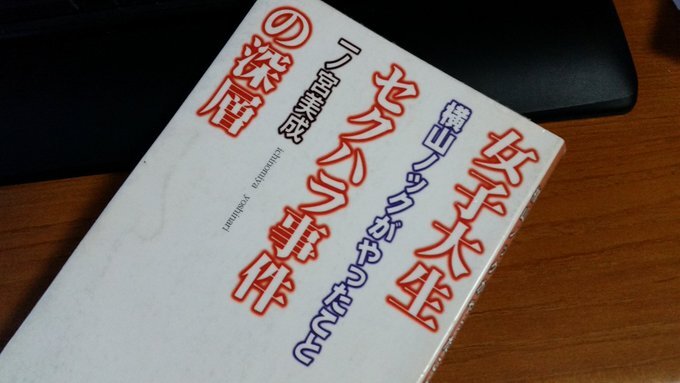 女子大生
横山ノックがやったこと
セクハラ事件
一ノ宮美成
ichinomiya yoshinari
の深層